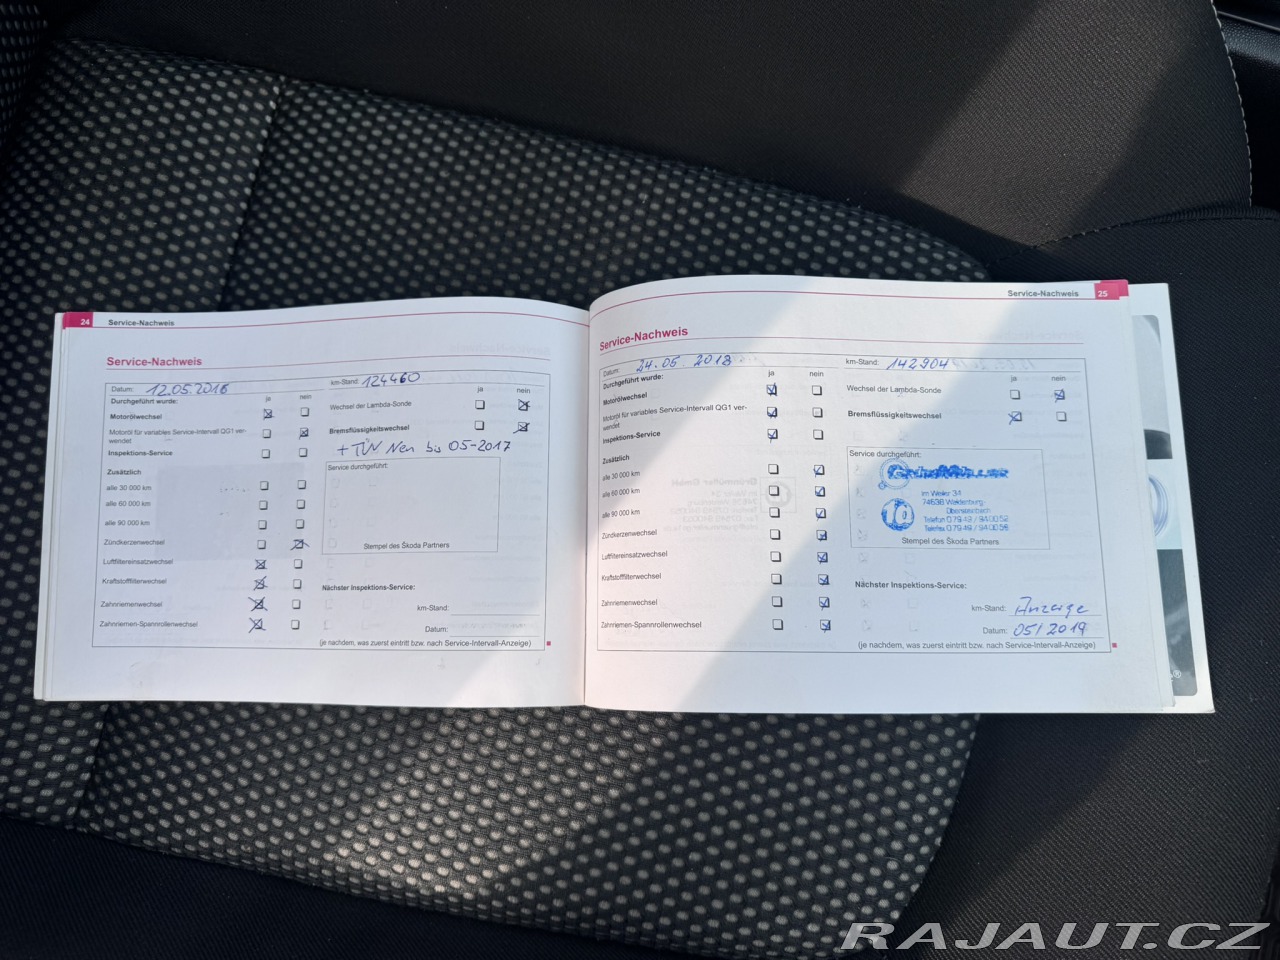 24 Service-Nachweis
Service-Nachweis
Datum: 12.05.2016
km-Stand: 124460
Durchgeführt wurde:
ja nein
Motorölwechsel
Motoröl für variables Service-Intervall QG1 ver-
wendet
Inspektions-Service
Zusätzlich
alle 30 000 km
alle 60 000 km
alle 90 000 km
Zündkerzenwechsel
Luftfiltereinsatzwechsel
Kraftstofffilterwechsel
Zahnriemenwechsel
Zahnriemen-Spannrollenwechsel
ja nein
Wechsel der Lambda-Sonde
Bremsflüssigkeitswechsel
+ TÜV Neu bis 05-2017
Service durchgeführt:
Stempel des Škoda Partners
Nächster Inspektions-Service:
km-Stand:
Datum:
(je nachdem, was zuerst eintritt bzw. nach Service-Intervall-Anzeige)
Service-Nachweis 25
Service-Nachweis
Datum: 24.05.2018
km-Stand: 142904
Durchgeführt wurde:
ja nein
Motorölwechsel
Motoröl für variables Service-Intervall QG1 ver-
wendet
Inspektions-Service
Zusätzlich
alle 30 000 km
alle 60 000 km
alle 90 000 km
Zündkerzenwechsel
Luftfiltereinsatzwechsel
Kraftstofffilterwechsel
Zahnriemenwechsel
Zahnriemen-Spannrollenwechsel
ja nein
Wechsel der Lambda-Sonde
Bremsflüssigkeitswechsel
Service durchgeführt:
im Weiler 34
74638 Waldenburg-
Obersteinbach
Telefon 0 79 49 / 94 00 52
Telefax 0 79 49 / 94 00 56
Stempel des Škoda Partners
Nächster Inspektions-Service:
km-Stand: Anzeige
Datum: 05/2019
(je nachdem, was zuerst eintritt bzw. nach Service-Intervall-Anzeige)
RAJAUT.CZ